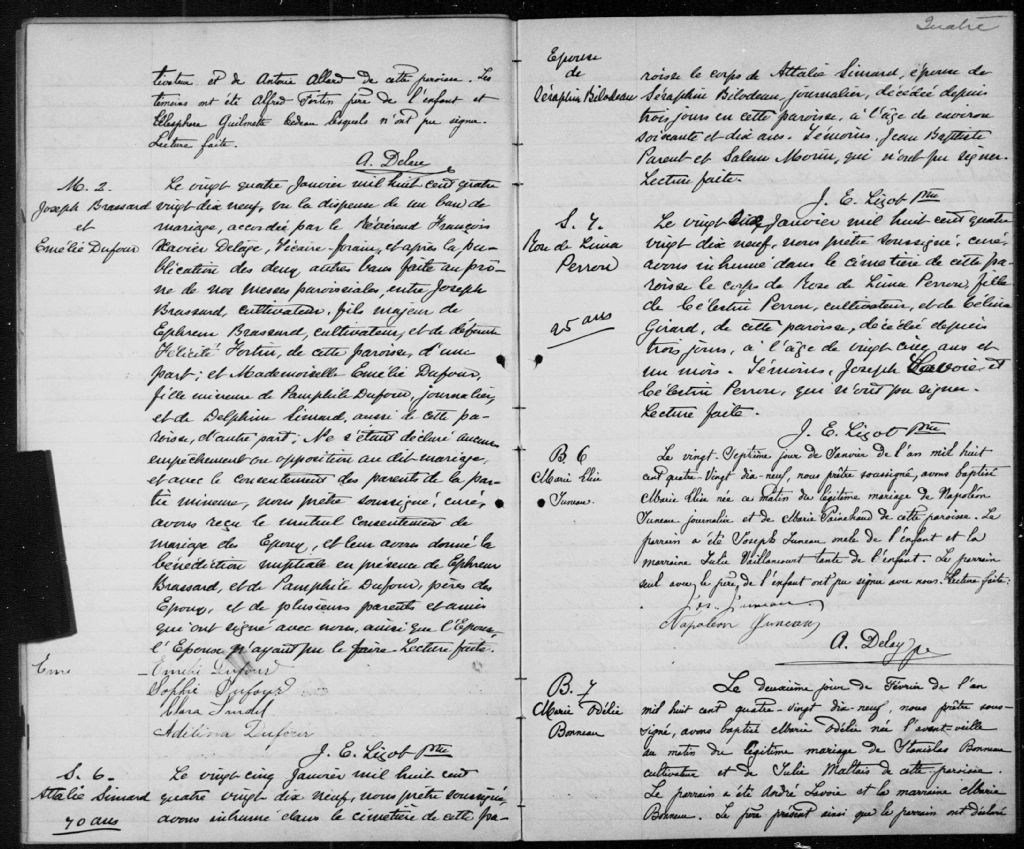 tivateur et de Antonie Allard de cette paroisse. Les
témoins ont été Alfred Fortin père de l'enfant et
Elesphore Guilmette bedeau lesquels n'ont pu signe.
Lecture faite.
A. Delay
M. 2.
Joseph Brassard
et
Emélie Dufour
Le vingt quatre Janvier mil huit cent quatre
vingt dix neuf, vu la dispense de un ban de
mariage, accordée par le Révérend François
Xavier Delâge, Vicaire-forain, et après la pu-
blication des deux autres bans faite au prô-
ne de nos messes paroissiales, entre Joseph
Brassard, cultivateur, fils majeur de
Ephrem Brassard, cultivateur, et de défunte
Félicité Fortin, de cette paroisse, d'une
part; et Mademoiselle Emélie Dufour,
fille mineure de Pamphile Dufour, journalier,
et de Delphine Simard, aussi de cette pa-
roisse, d'autre part; Ne s'étant déclaré aucun
empêchement ou opposition au dit mariage,
et avec le consentement des parents de la par-
tie mineure, nous prêtre soussigné, curé,
avons reçu le mutuel consentement de
mariage des Epoux, et leur avons donné la
bénédiction nuptiale en présence de Ephrem
Brassard, et de Pamphile Dufour, pères des
Epoux, et de plusieurs parents et amis
qui ont signé avec nous, ainsi que l'Epoux,
l'Epouse n'ayant pu le faire. Lecture faite.
Eme
Emélie Dufour
Sophie Dufour
Clara
Adélina Dufour
J. E. Lizot Ptre
S. 6.
Attalie Simard
70 ans
Le vingt cinq Janvier mil huit cent
quatre vingt dix neuf, nous prêtre soussigné,
avons inhumé dans le cimetière de cette pa-
Quatre
Epouse
de
Séraphin Bilodeau
roisse le corps de Attalie Simard, épouse de
Séraphin Bilodeau, journalier, décédée depuis
trois jours en cette paroisse, à l'âge de environ
soixante et dix ans. Témoins, Jean Baptiste
Parent et Salem Morin, qui n'ont pu signer.
Lecture faite.
J. E. Lizot Ptre
S. 7.
Rose de Lima
Perron
25 ans
Le vingt six Janvier mil huit cent quatre
vingt dix neuf, nous prêtre soussigné, curé,
avons inhumé dans le cimetière de cette pa-
roisse le corps de Rose de Lima Perron, fille
de Célestin Perron, cultivateur, et de Célina
Girard, de cette paroisse, décédée depuis
trois jours, à l'âge de vingt cinq ans et
un mois. Témoins, Joseph Lavoie et
Célestin Perron, qui n'ont pu signer.
Lecture faite.
J. E. Lizot Ptre
B. 6
Marie Elise
Juneau.
Le vingt-Septième jour de Janvier de l'an mil huit
cent quatre-vingt dix-neuf, nous prêtre soussigné, avons baptisé
Marie Elise née ce matin du légitime mariage de Napoléon
Juneau journalier et de Marie Painchaud de cette paroisse. Le
parrain a été Joseph Juneau oncle de l'enfant et la
marraine Julie Vaillancourt tante de l'enfant. Le parrain
seul avec le père de l'enfant ont pu signe avec nous. Lecture faite.
Jos. Juneau
Napoléon Juneau
A. Delay ptre
B. 7
Marie Odélie
Bonneau
Le deuxième jour de Février de l'an
mil huit cent quatre-vingt dix neuf, nous prêtre sous-
signé, avons baptisé Marie Odélie née l'avant-veille
au matin du légitime mariage de Stanislas Bonneau
cultivateur et de Julie Maltais de cette paroisse
Le parrain a été André Lavoie et la marraine Marie
Bonneau. Le père présent ainsi que le parrain ont déclaré